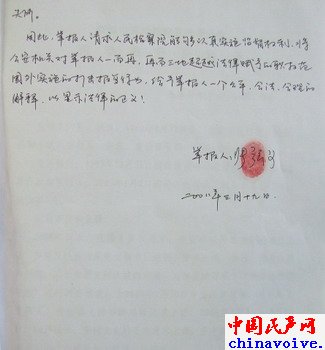 因此,举报人请求人民检察院能够认真实施监督权利,将
公安机关对举报人一而再,再而三地超越法律赋予的职权范
围外实施的打击报复行为,给予举报人一个公平、合法、合理的
解释,以显示法律的正义!
举报人:
二〇〇八年三月十九日
中国民声网
chinavoive.com